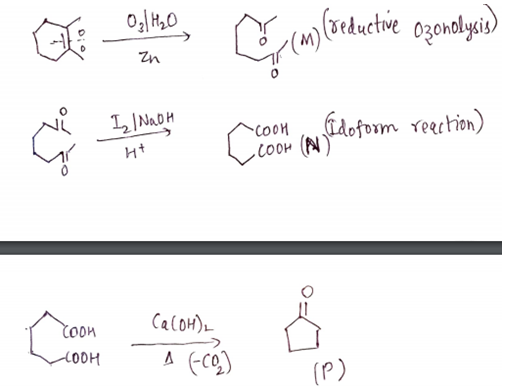 O3/H2O
Zn
O
O
O
O
(M) (reductive Ozonolysis)
O
O
I2/NaOH
H+
COOH
COOH (N) (Idoform reaction)
COOH
COOH
Ca(OH)2
Δ (-CO2)
O
(P)